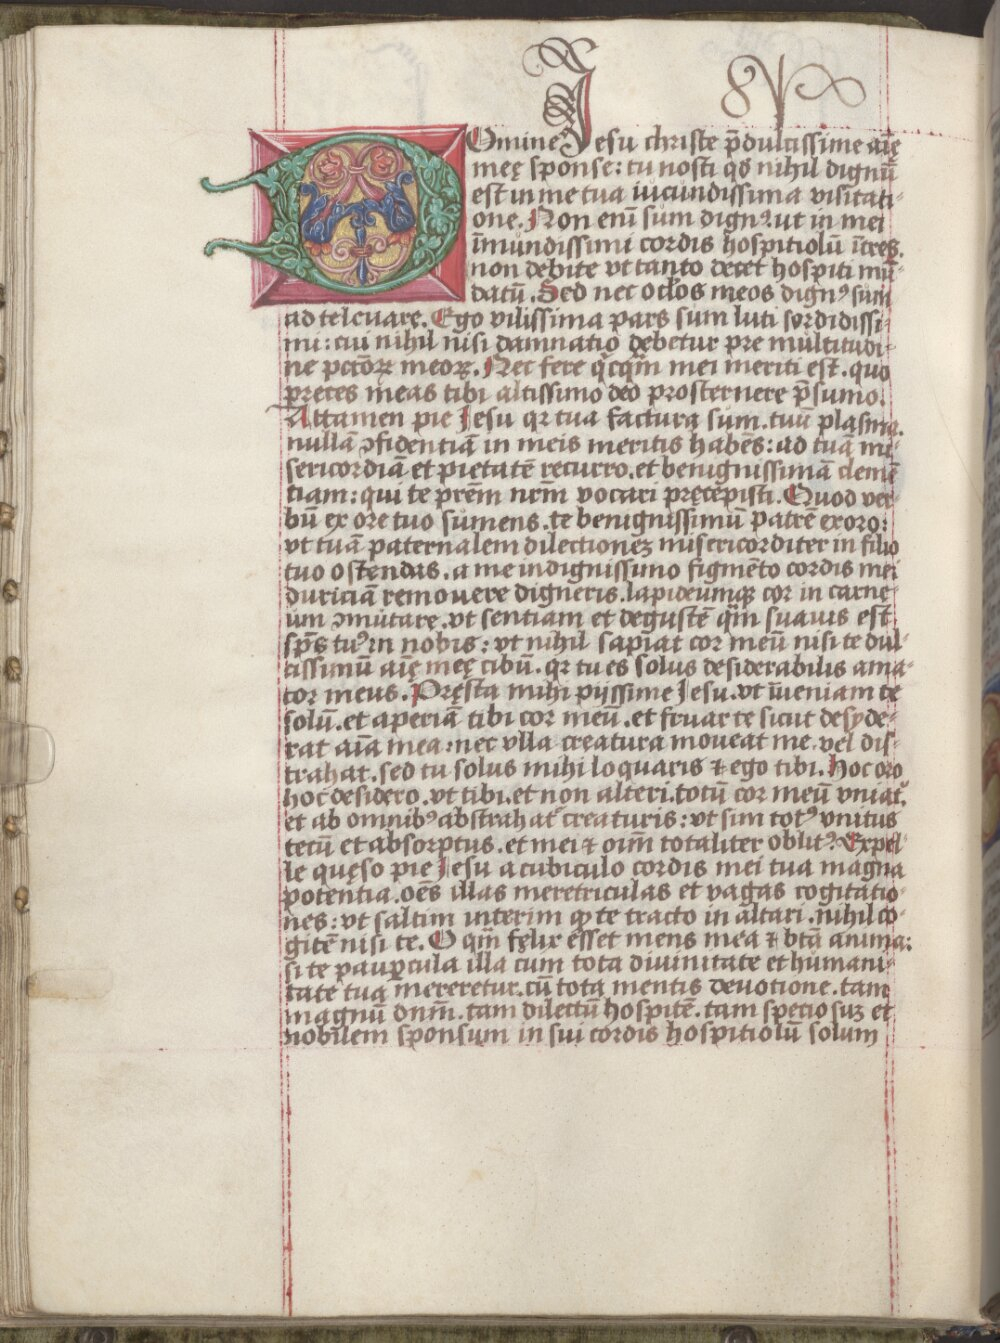 Domine Jesu christe p̄dulcissime aīe
meę sponse: tu nosti qđ nihil dignū
est in me tua iucundissima visitati-
one. Non enī sum dignꝰ ut in mei
īmundissimi cordis hospitiolū
non debite vt tanto decet hospiti mū-
datū. Sed nec oc̄los meos dignꝰ sum
ad te leuare. Ego vilissima pars sum luti sordidissi-
mi: cui nihil nisi damnatio debetur pre multitudi-
ne pctōꝝ meoꝝ. Nec fere q̄cq̄m mei meriti est. quo
preces meas tibi altissimo deo prosternere p̄sumo.
Attamen pie Jesu qr tua factura sum. tuū plasma.
nullā ɔfidentiā in meis meritis habēs: ad tuā mi-
sericordiā et pietatē recurro. et benignissimā clemē
tiam: qui te prēm nrm̄ vocari pręcepisti. Quod ver-
bū ex ore tuo sumens. te benignissimū patrē exoro:
vt tuā paternalem dilectionez misericorditer in filio
tuo ostendas. a me indignissimo figmēto cordis mei
duriciā remouere digneris. lapideumqꝫ cor in carne-
um ɔmutare. vt sentiam et degustē q̄m suauis est
sp̄s tuꝰ in nobis: vt nihil sapiat cor meū nisi te dul-
cissimū aīę meę cibū. qr tu es solus desiderabilis ama-
tor meus. Pręsta mihi pijssime Jesu. vt īueniam te
solū. et aperiā tibi cor meū. et fruar te sicut desyde-
rat aīa mea: nec vlla creatura moueat me. vel dis-
trahat. sed tu solus mihi loquaris ⁊ ego tibi. Hoc oro
hoc desidero. vt tibi. et non alteri. totū cor meū vniat᷑.
et ab omnibꝰ abstrahat᷑ creaturis: vt sim totꝰ vnitus
tecū et absorptus. et mei ⁊ oīm totaliter oblitꝰ. Expel-
le quęso pie Jesu a cubiculo cordis mei tua magna
potentia. oēs illas meretriculas et vagas cogitatio-
nes: vt saltim interim ꝙ te tracto in altari. nihil co-
gitē nisi te. O q̄m fęlix esset mens mea ⁊ btā anima:
si te paupercula illa cum tota diuinitate et humani-
tate tua mereretur. cū tota mentis deuotione. tam
magnū dnm̄. tam dilectū hospitē. tam speciosuꝫ et
nobilem sponsum in sui cordis hospitiolū solum